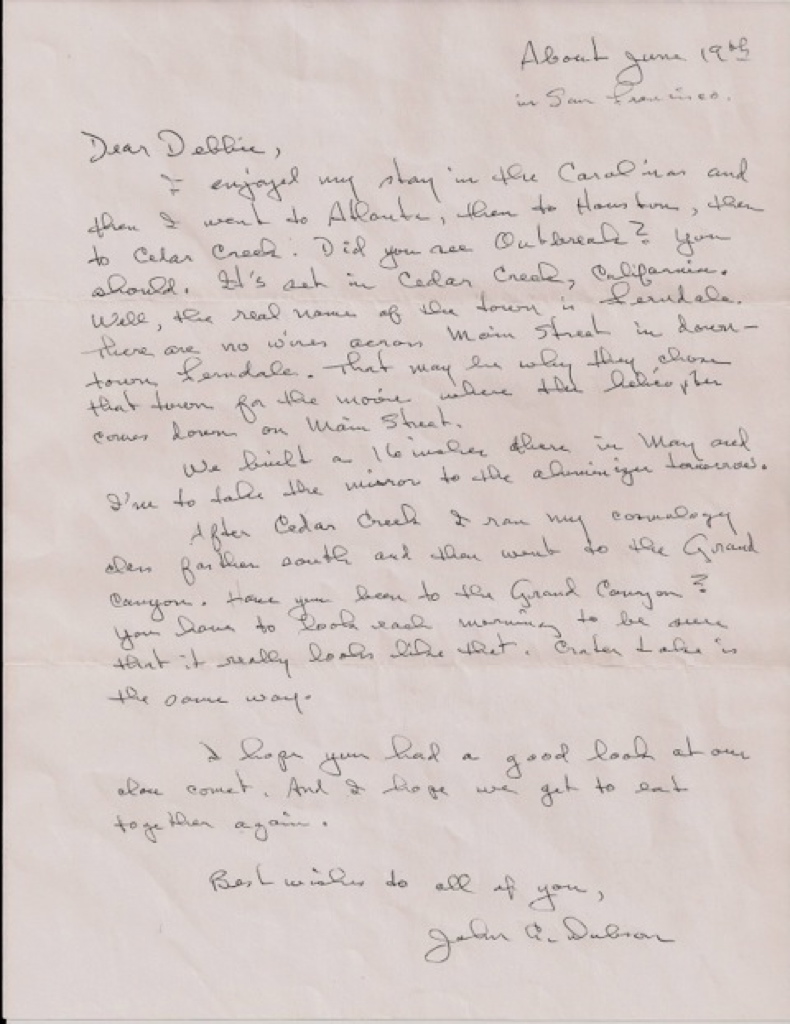 About June 19th
in San Francisco.
Dear Debbie,
I enjoyed my stay in the Carolinas and
then I went to Atlanta, then to Houston, then
to Cedar Creek. Did you see Outbreak? You
should. It's set in Cedar Creek, California.
Well, the real name of the town is Ferndale.
There are no wires across Main Street in down-
town Ferndale. That may be why they chose
that town for the movie where the helicopter
comes down on Main Street.
We built a 16 incher there in May and
I'm to take the mirror to the aluminizer tomorrow.
After Cedar Creek I ran my cosmology
class farther south and then went to the Grand
Canyon. Have you been to the Grand Canyon?
You have to look each morning to be sure
that it really looks like that. Crater Lake is
the same way.
I hope you had a good look at our
close comet. And I hope we get to eat
together again.
Best wishes to all of you,
John L. Dobson